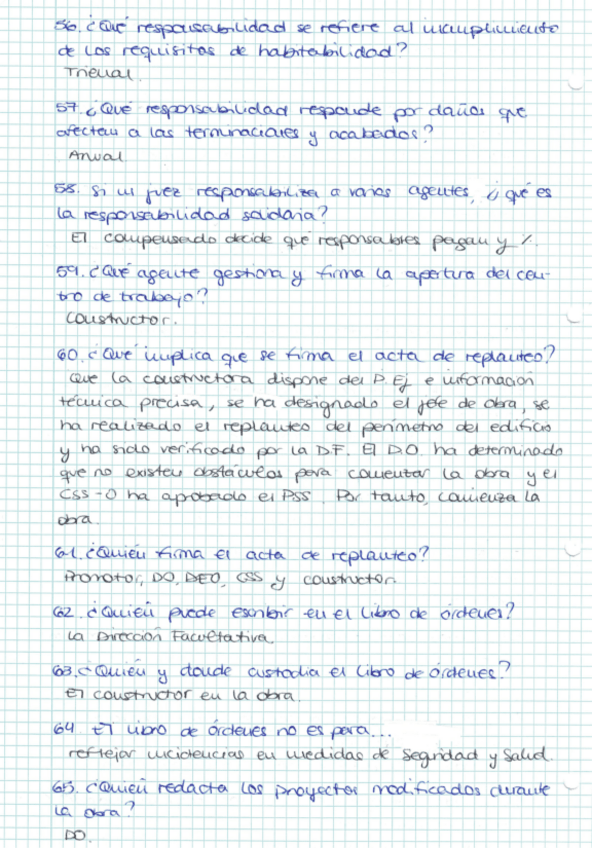 56. ¿Qué responsabilidad se refiere al incumplimiento
de los requisitos de habitabilidad?
Trienal.
57. ¿Qué responsabilidad responde por daños que
afecten a las terminaciones y acabados?
Anual
58. Si un juez responsabiliza a varios agentes, ¿qué es
la responsabilidad solidaria?
El compensado decide qué responsables pagan y %.
59. ¿Qué agente gestiona y firma la apertura del cen-
tro de trabajo?
Constructor.
60. ¿Qué implica que se firma el acta de replanteo?
Que la constructora dispone del P.Ej e información
técnica precisa, se ha designado el jefe de obra, se
ha realizado el replanteo del perímetro del edificio
y ha sido verificado por la DF. El D.O. ha determinado
que no existen obstáculos para comentar la obra y el
CSS-O ha aprobado el PSS. Por tanto, comienza la
obra.
61. ¿Quién firma el acta de replanteo?
Promotor, DO, DEO, CSS y constructor.
62. ¿Quién puede escribir en el libro de órdenes?
La Dirección Facultativa.
63. ¿Quién y donde custodia el libro de órdenes?
El constructor en la obra.
64. El libro de órdenes no es para...
reflejar incidencias en medidas de Seguridad y Salud.
65. ¿Quién redacta los proyectos modificados durante
la obra?
DO.